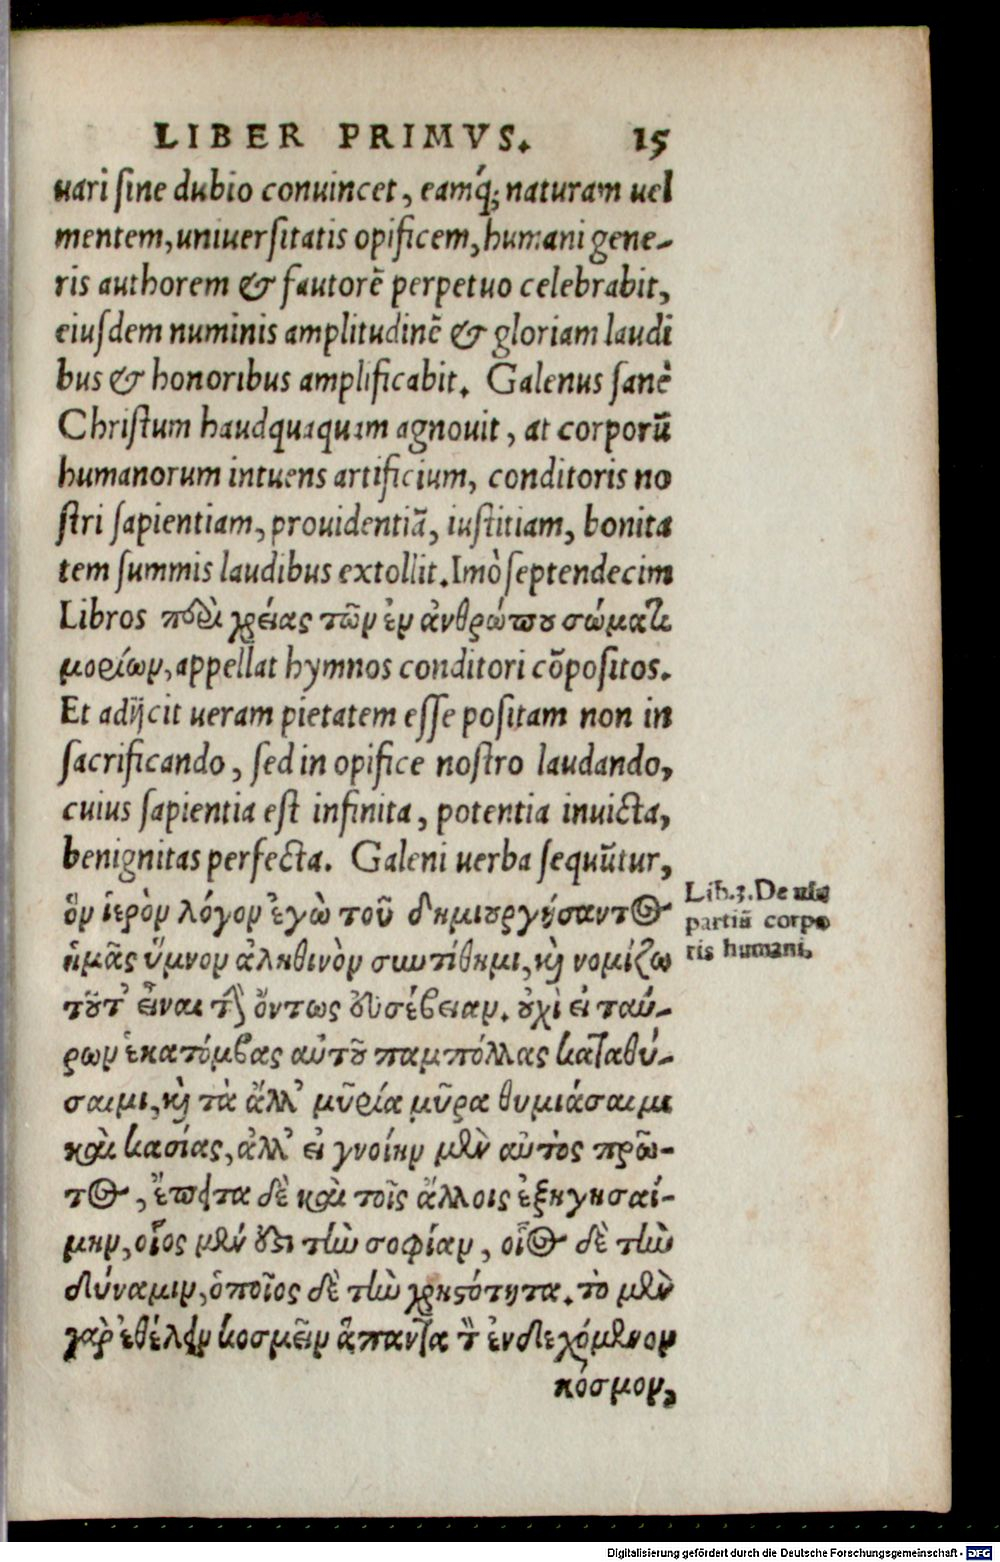 LIBER PRIMVS. 15
uari sine dubio conuincet, eamq́; naturam uel
mentem, uniuersitatis opificem, humani gene-
ris authorem & fautorē perpetuo celebrabit,
eiusdem numinis amplitudinē & gloriam laudi
bus & honoribus amplificabit. Galenus sanè
Christum haudquaquam agnouit, at corporū
humanorum intuens artificium, conditoris no
stri sapientiam, prouidentiā, iustitiam, bonita
tem summis laudibus extollit. Imò septendecim
Libros περὶ χρείας τῶν ἐν ἀνθρώπου σώματι
μορίων, appellat hymnos conditori cōpositos.
Et adijcit ueram pietatem esse positam non in
sacrificando, sed in opifice nostro laudando,
cuius sapientia est infinita, potentia inuicta,
benignitas perfecta. Galeni uerba sequūtur,
ὃν ἱερὸν λόγον ἐγὼ τοῦ δημιουργήσαντος
ἡμᾶς ὕμνον ἀληθινὸν συντίθημι, καὶ νομίζω
τοῦτ' εἶναι τὴν ὄντως εὐσέβειαν. οὐχὶ εἰ ταύ-
ρων ἑκατόμβας αὐτοῦ παμπόλλας καταθύ-
σαιμι, καὶ τὰ ἄλλ' μῦρία μῦρα θυμιάσαιμι
καὶ κασίας, ἀλλ' εἰ γνοίην μὲν αὐτὸς πρῶ-
τος, ἔπειτα δὲ καὶ τοῖς ἄλλοις ἐξηγησαί-
μην, οἷος μέν ἐστι τὴν σοφίαν, οἷος δὲ τὴν
δύναμιν, ὁποῖος δὲ τὴν χρηστότητα. τὸ μὲν
γὰρ ἐθέλειν κοσμεῖν ἅπαντα τὸν ἐνδεχόμενον
κόσμον,
Lib.3. De usu
partiū corpo
ris humani.
Digitalisierung gefördert durch die Deutsche Forschungsgemeinschaft - DFG